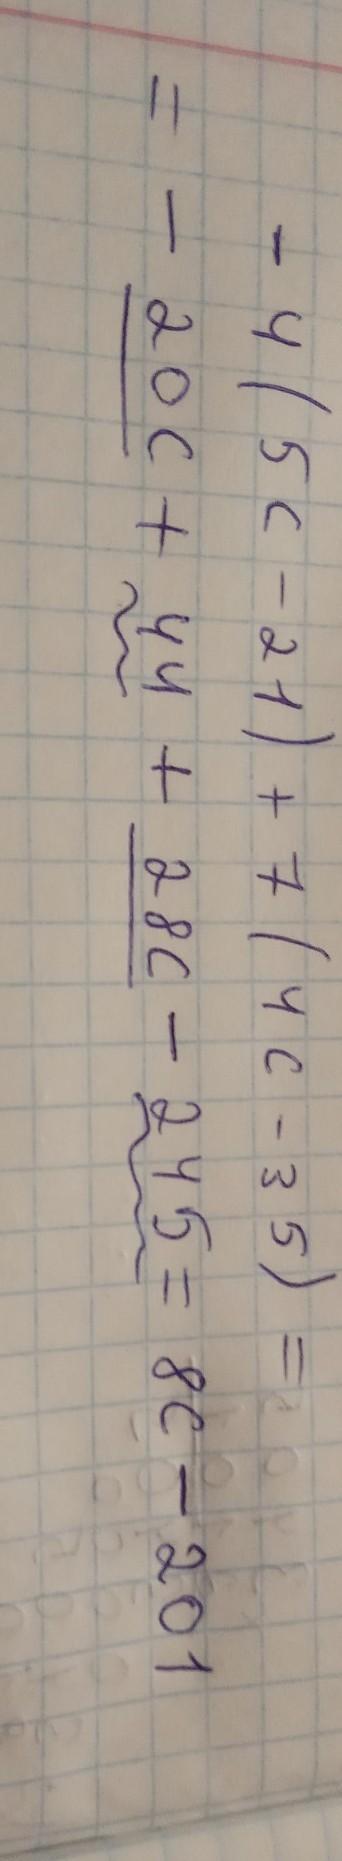 - 4 ( 5c - 21 ) + 7 ( 4c - 35 ) =
= - 20c + 44 + 28c - 245 = 8c - 201